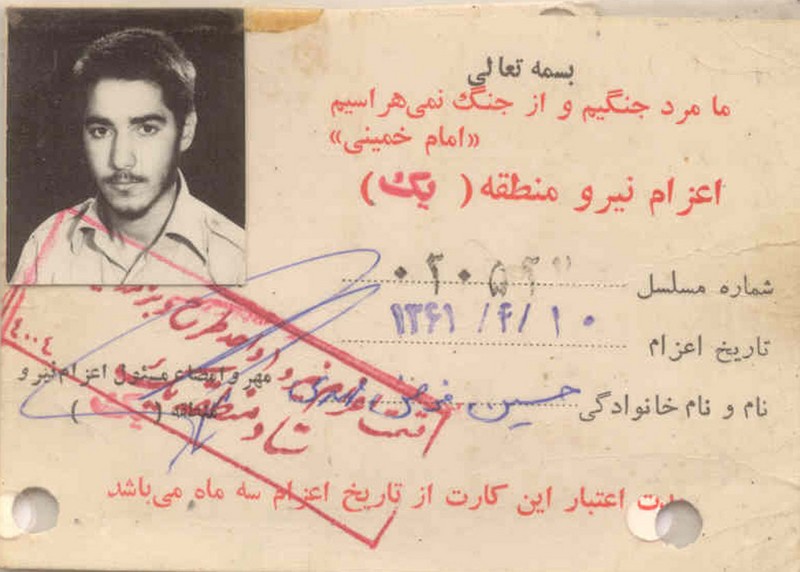 بسمه تعالی
ما مرد جنگیم و از جنگ نمی‌هراسیم
«امام خمینی»
اعزام نیرو منطقه ( یک )
شماره مسلسل
تاریخ اعزام ۱۳۶۱/۴/۱۰
نام و نام خانوادگی حسین
مهر و امضاء مسئول اعزام نیرو
منطقه ( یک )
۴۰۰۴
مدت اعتبار این کارت از تاریخ اعزام سه ماه می‌باشد